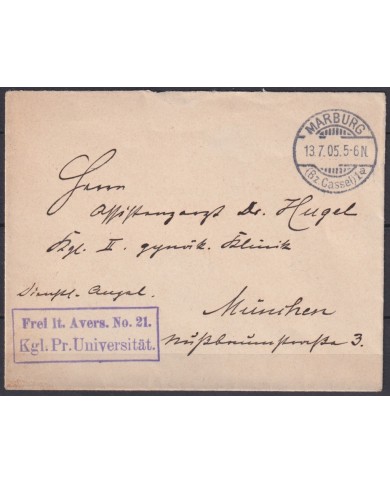 MARBURG
13.7.05.5-6N.
(Bz Cassel) 1
Herrn
Assistenzarzt Dr. Hugel
Kgl. II. gynäk. Klinik
Dienstl. Angel.
München
Nußbaumstraße 3.
Frei lt. Avers. No. 21.
Kgl. Pr. Universität.